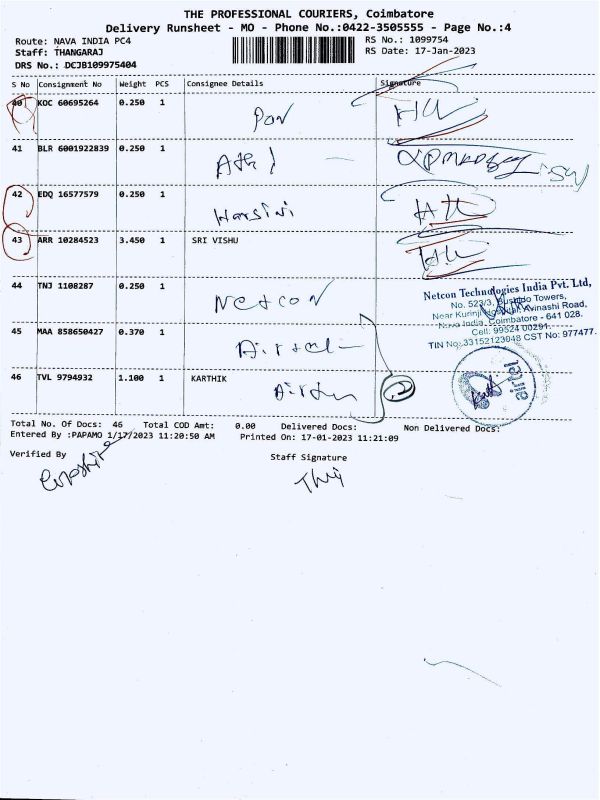 THE PROFESSIONAL COURIERS, Coimbatore
Delivery Runsheet - MO - Phone No.:0422-3505555 - Page No.:4
Route: NAVA INDIA PC4 RS No.: 1099754
Staff: THANGARAJ RS Date: 17-Jan-2023
DRS No.: DCJB109975404
S No Consignment No Weight PCS Consignee Details Signature
40 KOC 60695264 0.250 1 Pon
41 BLR 6001922839 0.250 1
42 EDQ 16577579 0.250 1 Harsini
43 ARR 10284523 3.450 1 SRI VISHU
44 TNJ 1108287 0.250 1 Netcon
Netcon Technologies India Pvt. Ltd,
No. 523/3, Bushido Towers,
Near Kurinji Hospital, Avinashi Road,
Nava India, Coimbatore - 641 028.
Cell: 99524 00291.
TIN No:33152123048 CST No: 977477.
45 MAA 858650427 0.370 1 Airtel
46 TVL 9794932 1.100 1 KARTHIK
airtel
Total No. Of Docs: 46 Total COD Amt: 0.00 Delivered Docs: Non Delivered Docs:
Entered By :PAPAMO 1/17/2023 11:20:50 AM Printed On: 17-01-2023 11:21:09
Verified By Staff Signature